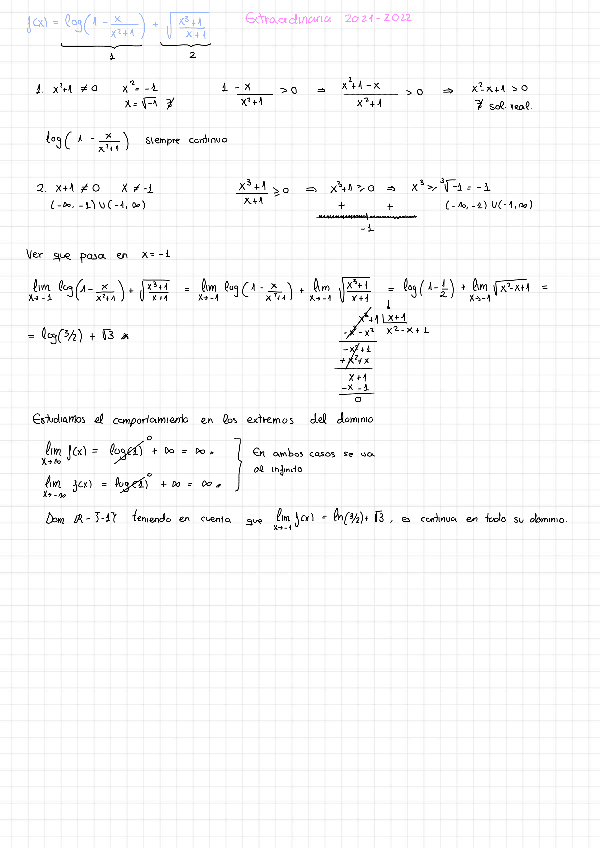 f(x) = log(1 - x/(x²+1)) + √((x³+1)/(x+1)) Extraordinaria 2021-2022
1 2
1. x²+1 ≠ 0 x² = -1 1 - x/(x²+1) > 0 ⇒ (x²+1-x)/(x²+1) > 0 ⇒ x²-x+1 > 0
x = √-1 ∄ ∄ sol. real.
log(1 - x/(x²+1)) siempre continuo
2. x+1 ≠ 0 x ≠ -1 (x³+1)/(x+1) ≥ 0 ⇒ x³+1 ≥ 0 ⇒ x³ ≥ ∛-1 = -1
(-∞, -1) ∪ (-1, ∞) + + (-∞, -1) ∪ (-1, ∞)
-1
Ver que pasa en x = -1
lim x→-1 log(1 - x/(x²+1)) + √((x³+1)/(x+1)) = lim x→-1 log(1 - x/(x²+1)) + lim x→-1 √((x³+1)/(x+1)) = log(1 - 1/2) + lim x→-1 √(x²-x+1) =
x³+1 | x+1
= log(3/2) + √3 -x³-x² x²-x+1
-x²+1
+x²+x
x+1
-x-1
0
Estudiamos el comportamiento en los extremos del dominio
lim x→∞ f(x) = log(1) 0 + ∞ = ∞. En ambos casos se va
al infinito
lim x→-∞ f(x) = log(1) 0 + ∞ = ∞.
Dom ℝ - {-1} teniendo en cuenta que lim x→-1 f(x) = ln(3/2) + √3, es continua en todo su dominio.